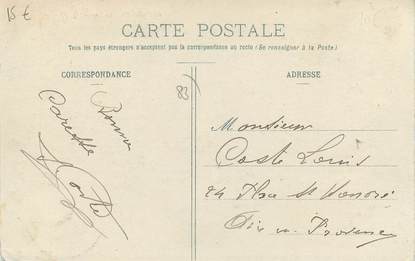 15 €
CARTE POSTALE
Tous les pays étrangers n'acceptent pas la correspondance au recto (Se renseigner à la Poste)
CORRESPONDANCE
ADRESSE
83
Bonne
Caresse
Monsieur
Coste Louis
24 Rue St Honoré
Aix en Provence